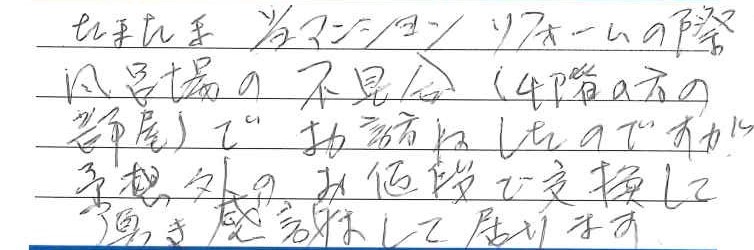 たまたま 当マンション リフォームの際
風呂場の 不具合 (4階の方の
部屋)で お訪ねしたのですが
予想外の お値段で交換して
頂き感謝して居ります